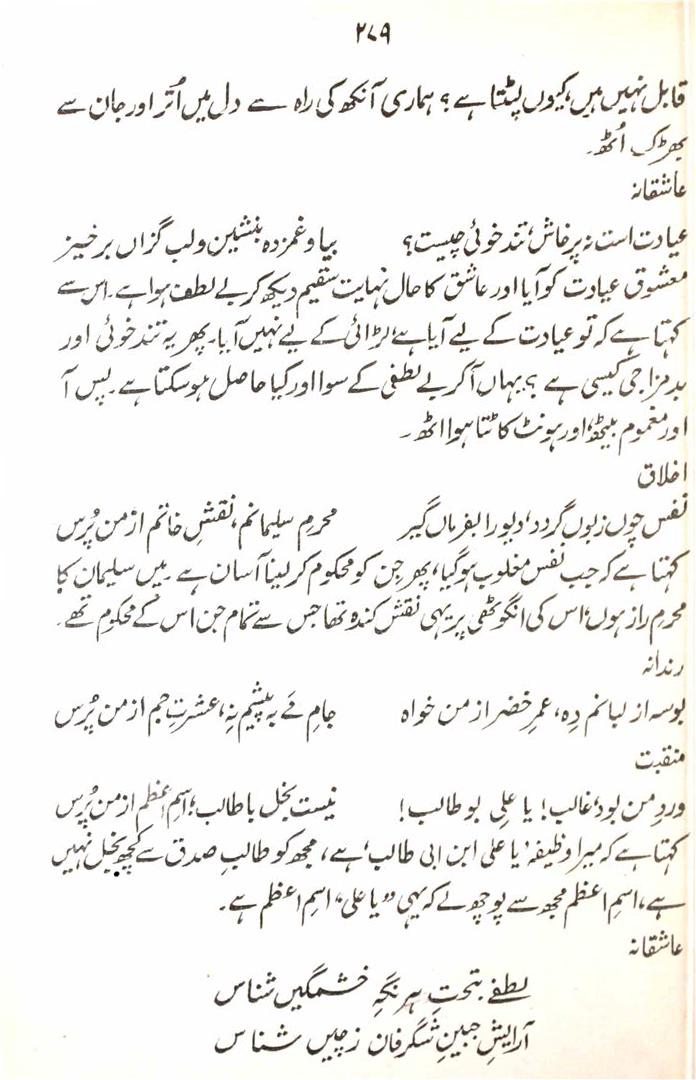 ۲۷۹
قابل نہیں ہیں، کیوں لپٹتا ہے؟ ہماری آنکھ کی راہ سے دل میں اُتر اور جان سے
پھڑک اُٹھ۔
عاشقانہ
عیادت است نہ پرخاش، تند خوئی چیست؟ بیا و غمزدہ بنشین و لب گزاں برخیز
معشوق عیادت کو آیا اور عاشق کا حال نہایت سقیم دیکھ کر بے لطف ہوا ہے۔ اس سے
کہتا ہے کہ تو عیادت کے لیے آیا ہے، لڑائی کے لیے نہیں آیا۔ پھر یہ تند خوئی اور
بدمزاجی کیسی ہے؟ یہاں آ کر بے لطفی کے سوا اور کیا حاصل ہو سکتا ہے۔ پس آ
اور مغموم بیٹھ، اور ہونٹ کاٹتا ہوا اٹھ۔
اخلاق
نفس چوں زبوں گردد، دیو را بفرماں گیر محرمِ سلیمانم، نقشِ خاتم از من پُرس
کہتا ہے کہ جب نفس مغلوب ہو گیا، پھر جن کو محکوم کر لینا آسان ہے۔ میں سلیمان کا
محرمِ راز ہوں، اس کی انگوٹھی پر یہی نقش کندہ تھا جس سے تمام جن اس کے محکوم تھے۔
رندانہ
بوسہ از لبانم دِہ، عمرِ خضر از من خواہ جامِ مَے بہ پیشم نِہ، عشرتِ جم از من پُرس
منقبت
وردِ من بود، غالب! یا علیِ بو طالب! نیست بخل با طالب، اسمِ اعظم از من پُرس
کہتا ہے کہ میرا وظیفہ 'یا علی ابن ابی طالب' ہے، مجھ کو طالبِ صدق سے کچھ بخل نہیں
ہے، اسمِ اعظم مجھ سے پوچھ لے کہ یہی "یا علی" اسمِ اعظم ہے۔
عاشقانہ
لطفے بتحتِ ہر نگہِ خشمگیں شناس
آرایشِ جبینِ شگرفاں ز چیں شناس